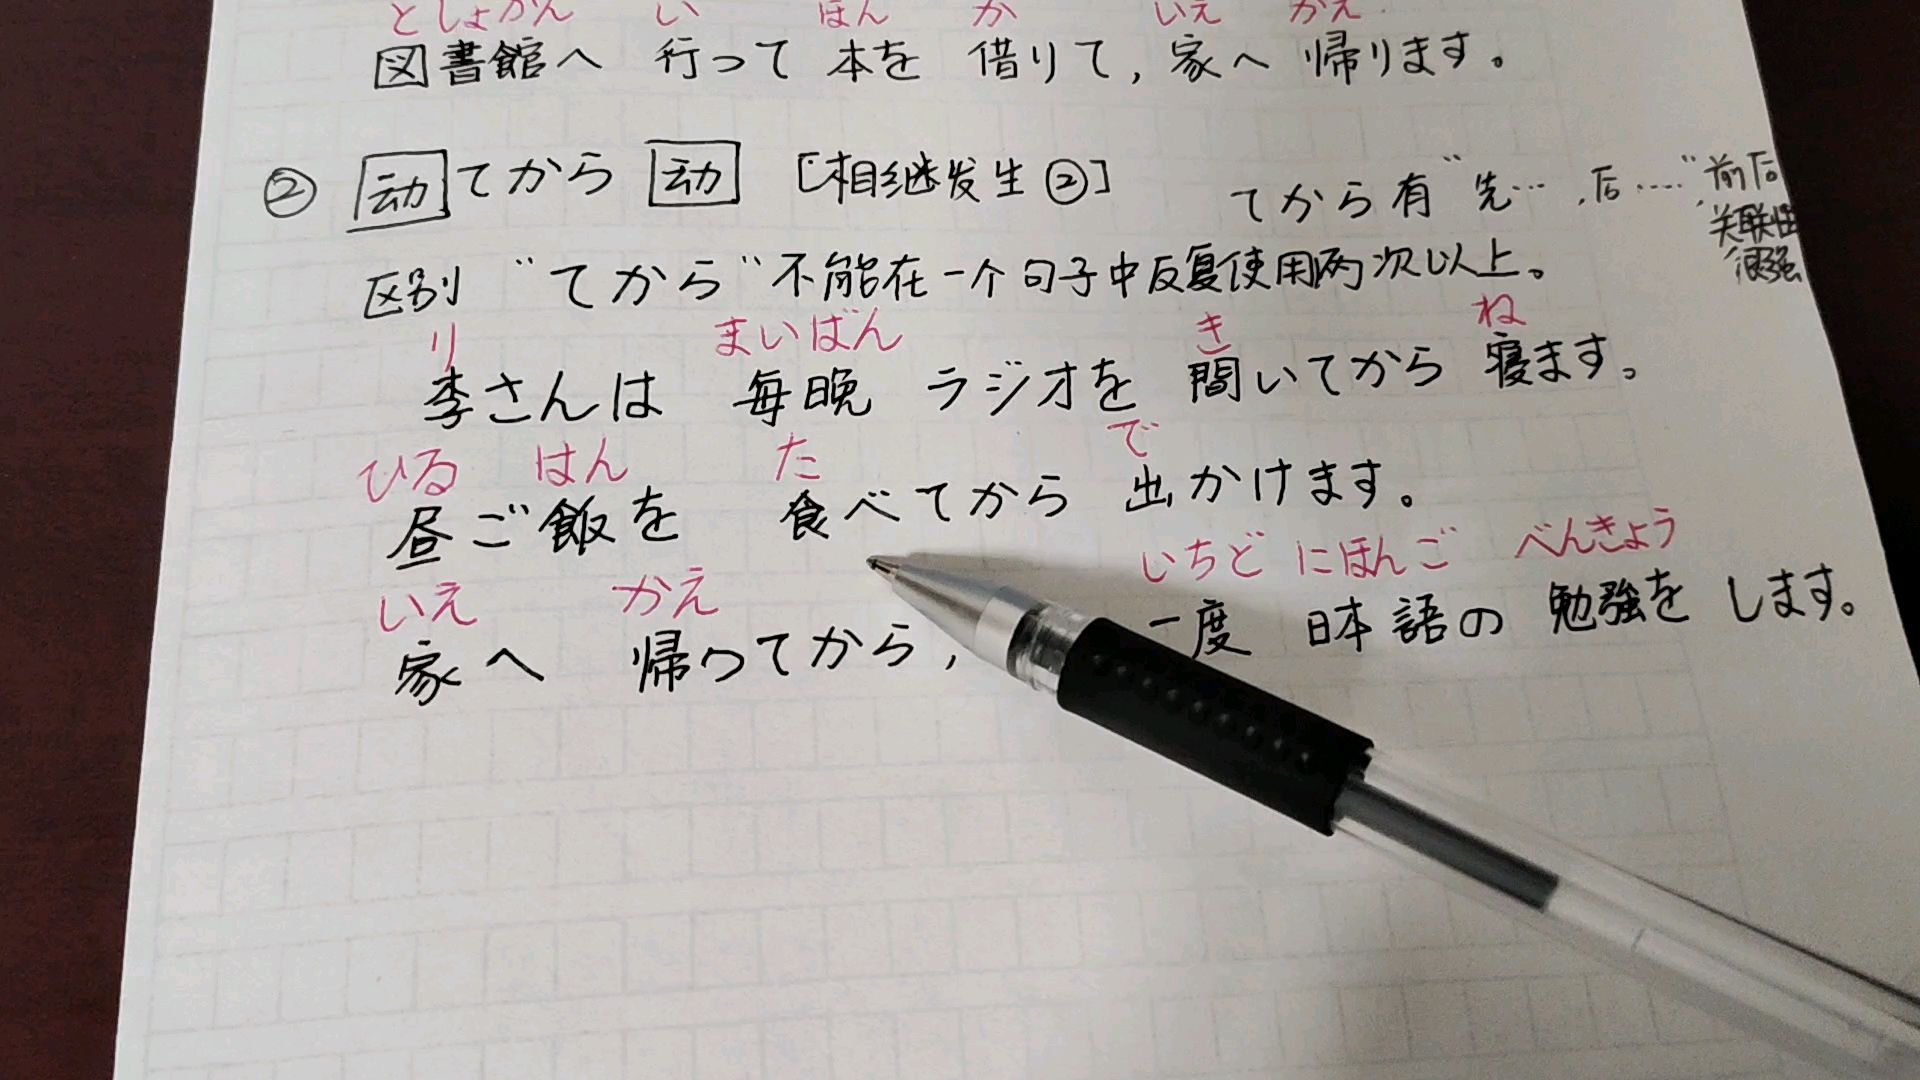 としょかん い ほん か いえ かえ
図書館へ 行って 本を 借りて,家へ 帰ります。
② 动てから 动 [相继发生②]
てから有"先…,后……"前后
关联性
很强
区别 "てから"不能在一个句子中反复使用两次以上。
り まいばん き ね
李さんは 毎晩 ラジオを 聞いてから 寝ます。
ひる はん た で
昼ご飯を 食べてから 出かけます。
いえ かえ いちど にほんご べんきょう
家へ 帰ってから, 一度 日本語の 勉強を します。